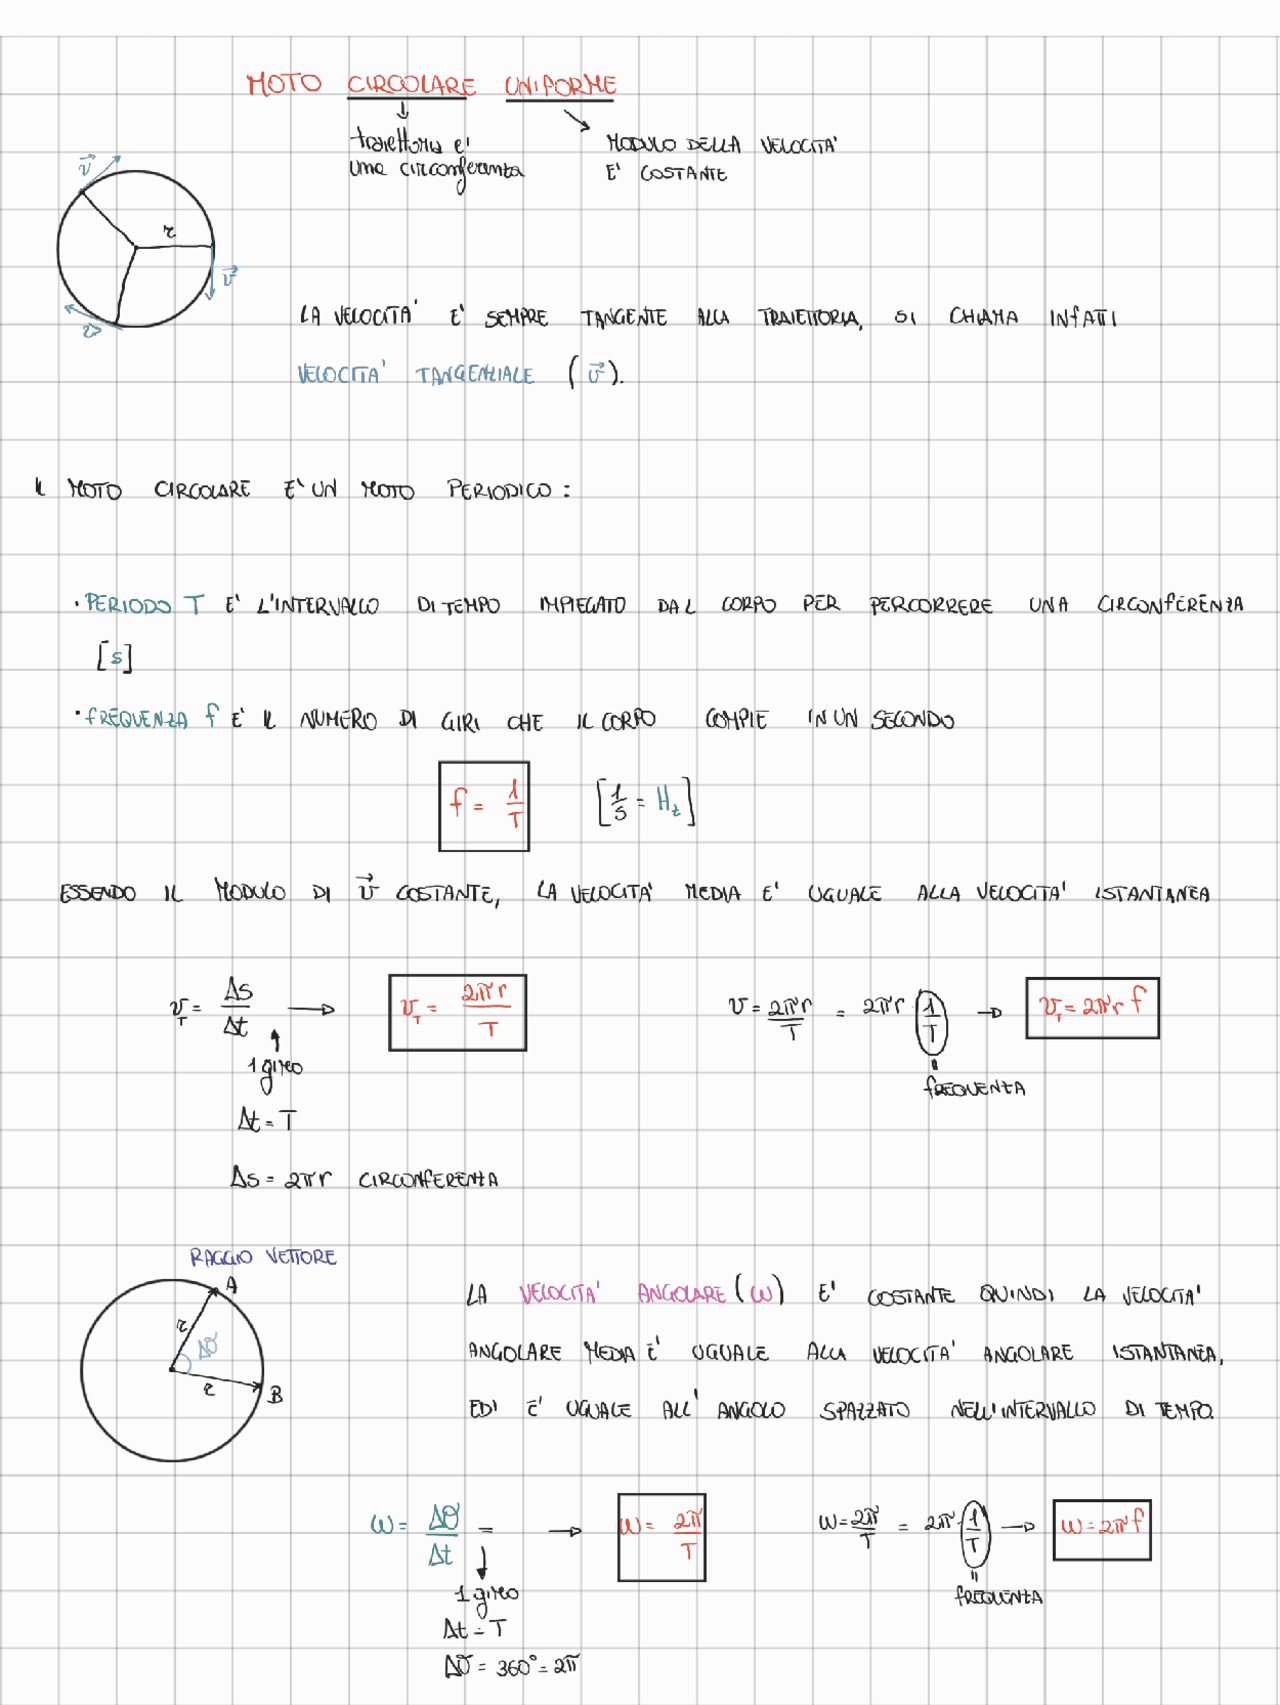 MOTO CIRCOLARE UNIFORME
traiettoria e'
una circonferenza
MODULO DELLA VELOCITA'
E' COSTANTE
v⃗
r
v⃗
v⃗
LA VELOCITA' E' SEMPRE TANGENTE ALLA TRAIETTORIA, SI CHIAMA INFATTI
VELOCITA' TANGENZIALE (v⃗).
IL MOTO CIRCOLARE E' UN MOTO PERIODICO:
· PERIODO T E' L'INTERVALLO DI TEMPO IMPIEGATO DAL CORPO PER PERCORRERE UNA CIRCONFERENZA
[s]
· FREQUENZA f E' IL NUMERO DI GIRI CHE IL CORPO COMPIE IN UN SECONDO
f = 1/T [1/s = Hz]
ESSENDO IL MODULO DI v⃗ COSTANTE, LA VELOCITA' MEDIA E' UGUALE ALLA VELOCITA' ISTANTANEA
v_T = Δs/Δt → v_T = 2πr/T v = 2πr/T = 2πr 1/T → v_T = 2πr f
1 giro
FREQUENZA
Δt = T
Δs = 2πr CIRCONFERENZA
RAGGIO VETTORE
A
r
Δθ
r
B
LA VELOCITA' ANGOLARE (ω) E' COSTANTE QUINDI LA VELOCITA'
ANGOLARE MEDIA E' UGUALE ALLA VELOCITA' ANGOLARE ISTANTANEA,
ED E' UGUALE ALL'ANGOLO SPAZZATO NELL'INTERVALLO DI TEMPO.
ω = Δθ/Δt = → ω = 2π/T ω = 2π/T = 2π 1/T → ω = 2πf
1 giro
FREQUENZA
Δt = T
Δθ = 360° = 2π